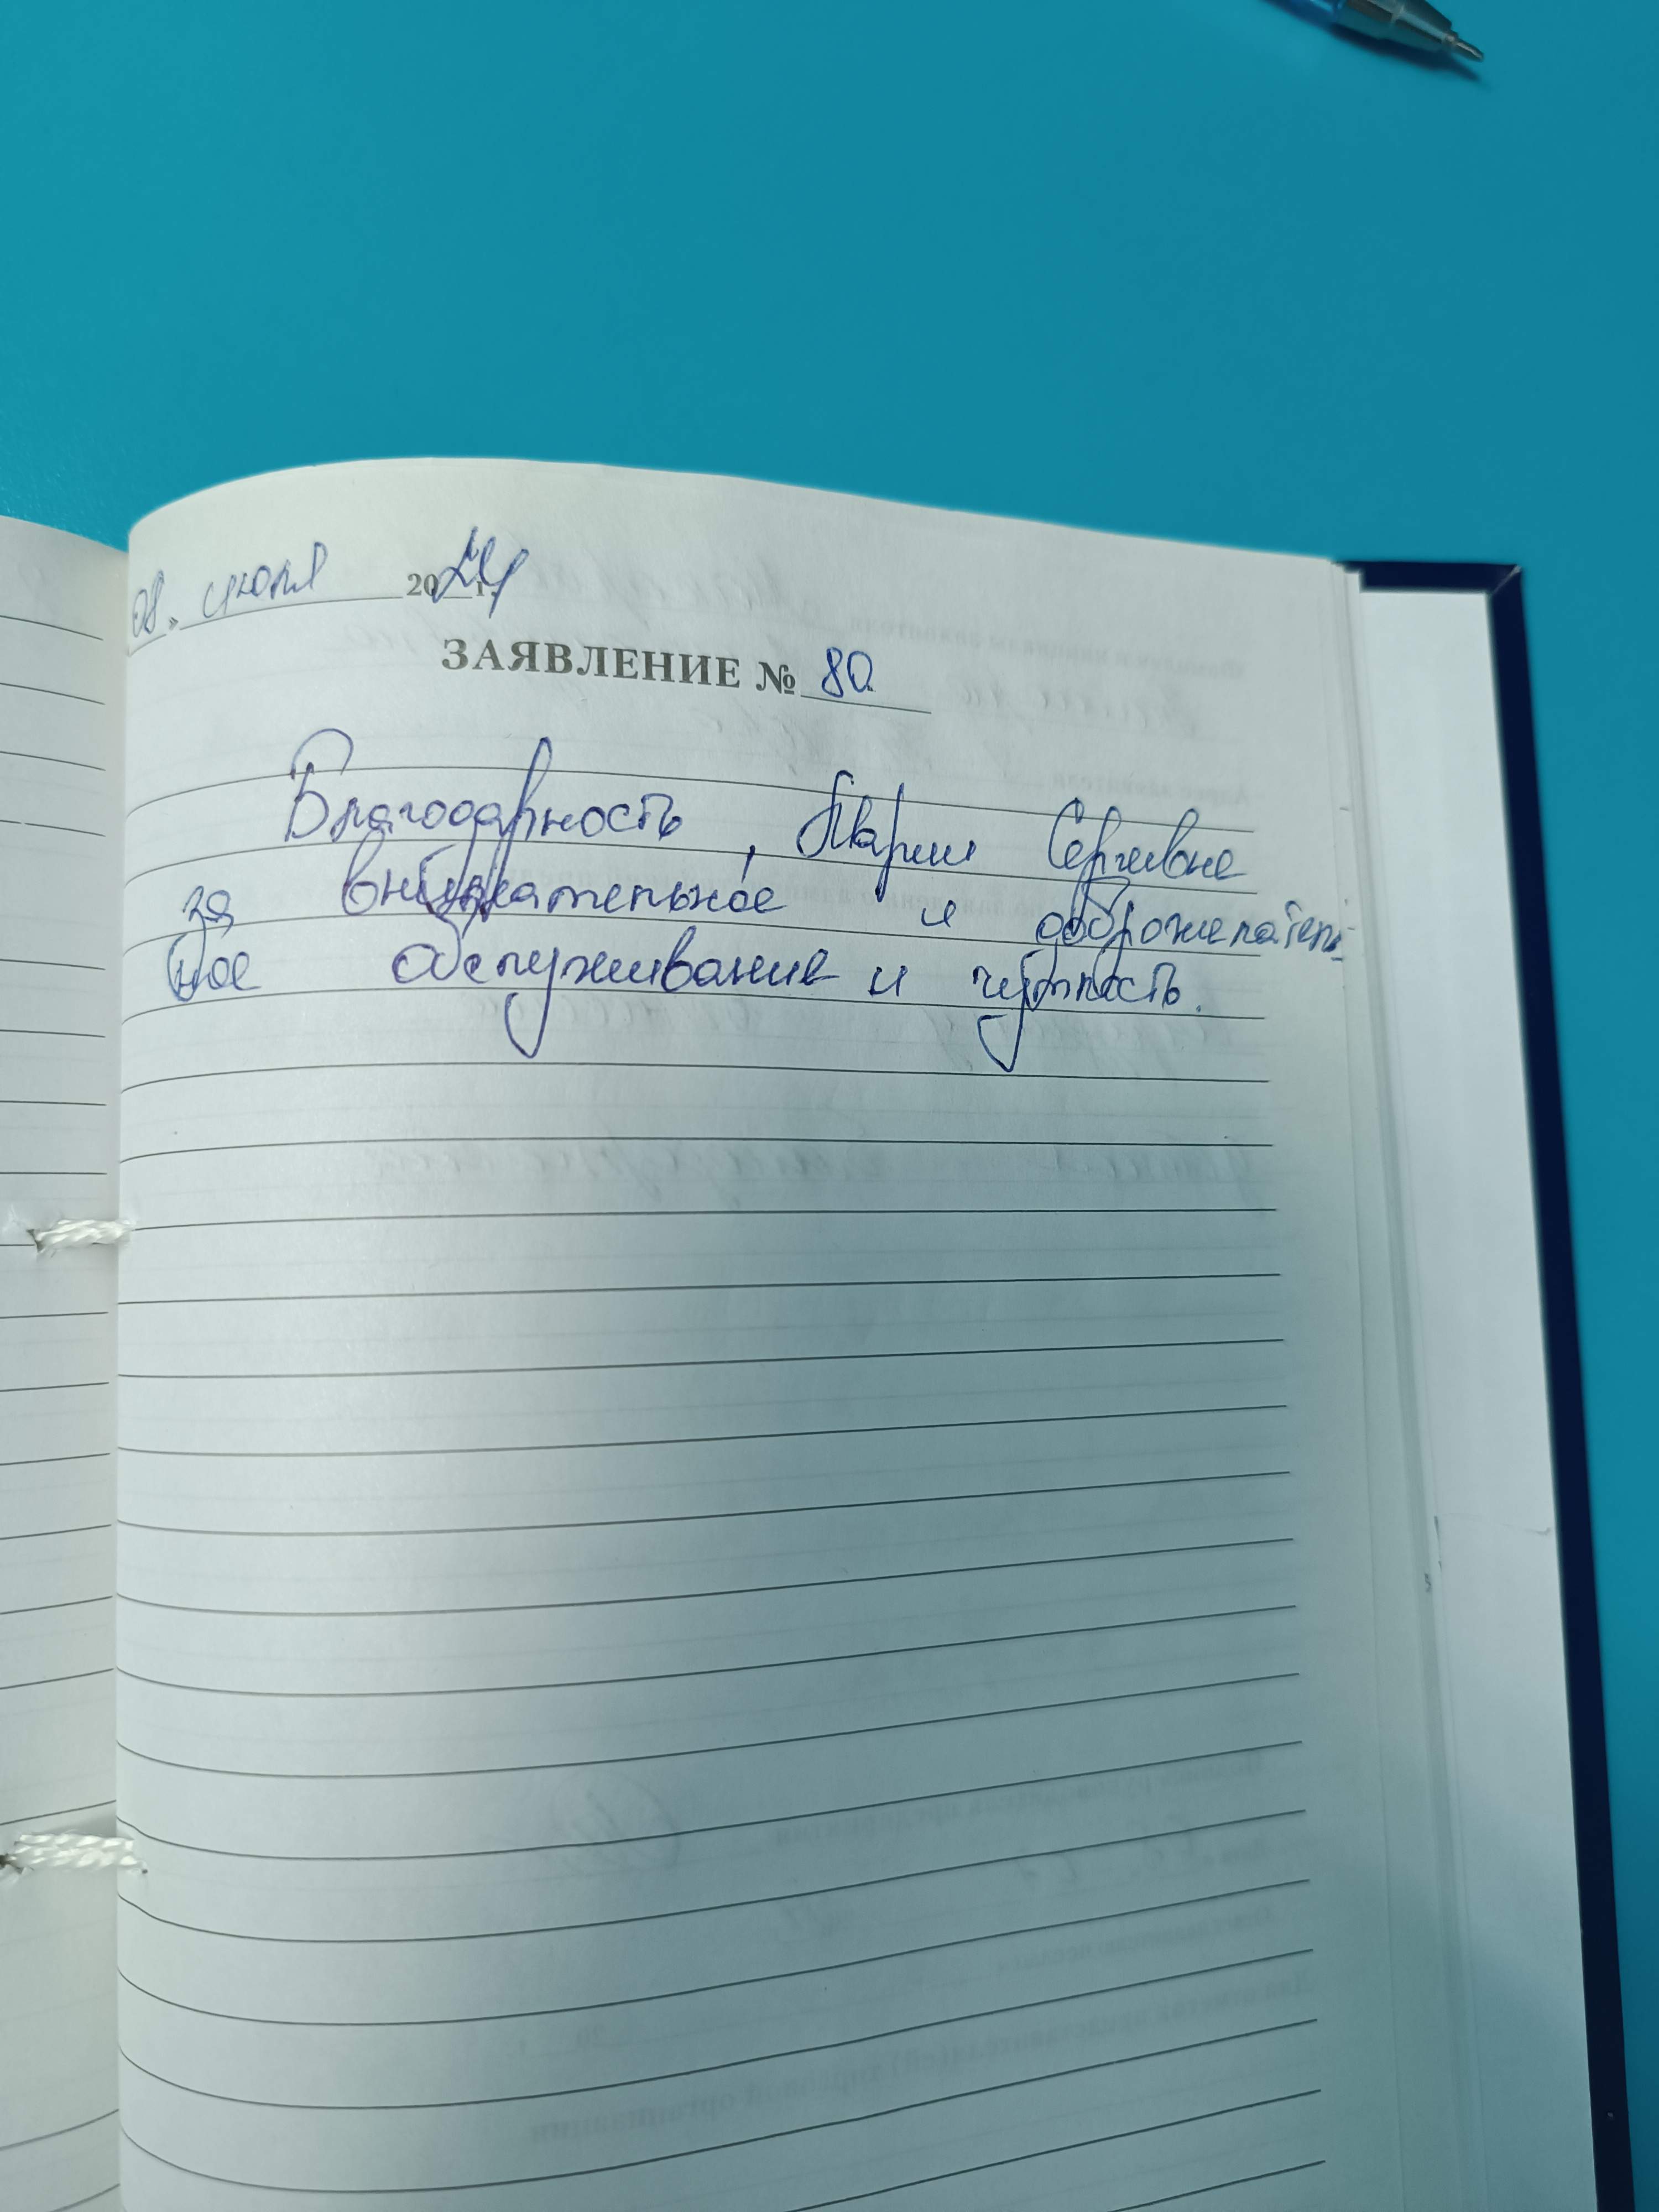 08. июля 2024 г.
ЗАЯВЛЕНИЕ № 80
Благодарность, Марии Сергеевне
за внимательное и доброжелатель-
ное обслуживание и чуткость.